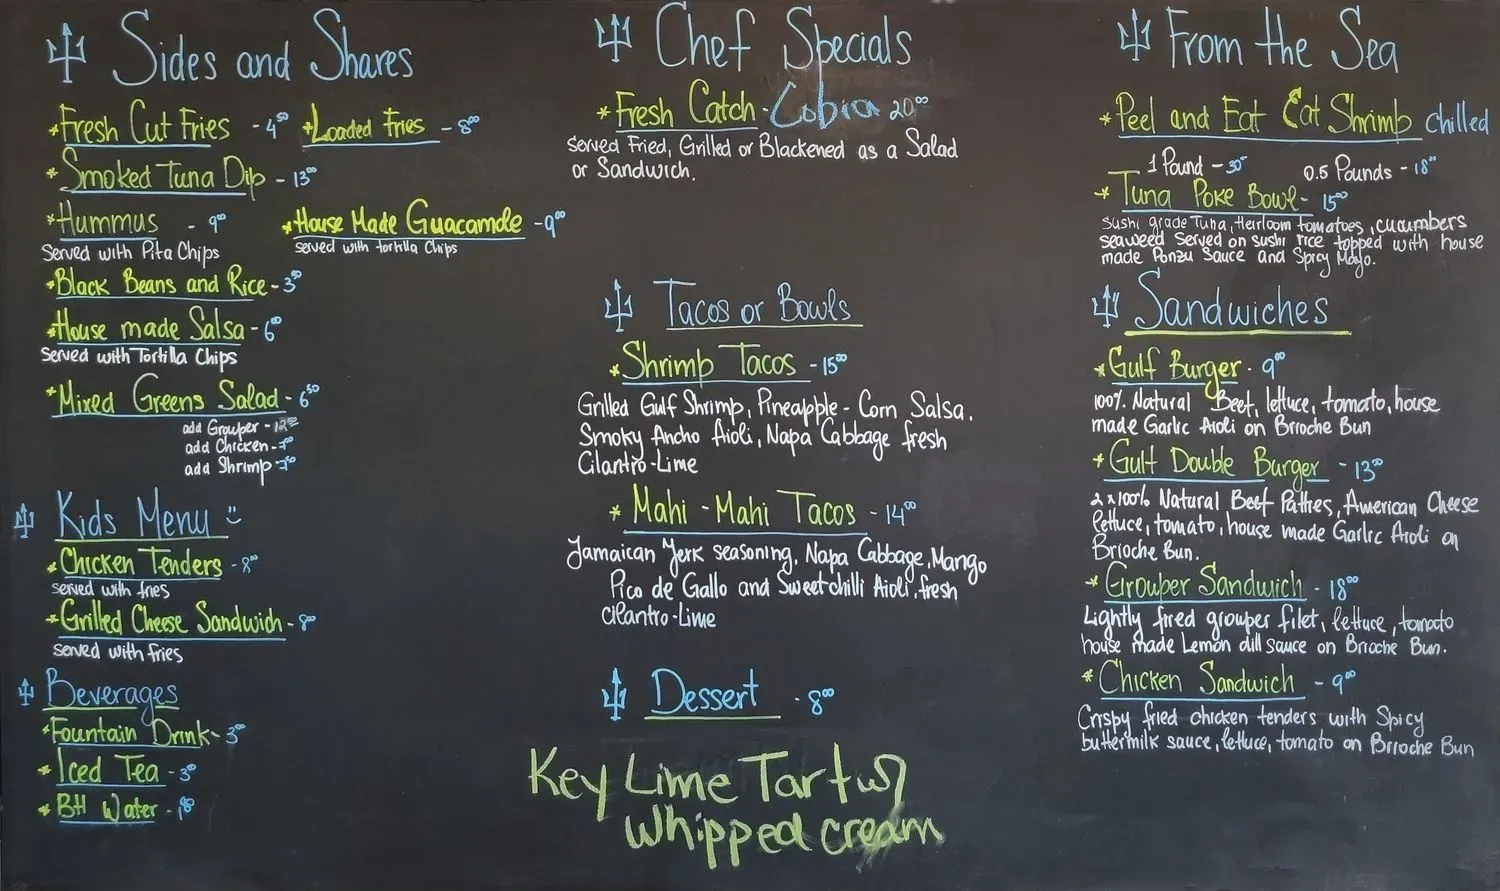 Sides and Shares
*Fresh Cut Fries - 4⁵⁰ *Loaded Fries - 8⁰⁰
*Smoked Tuna Dip - 13⁰⁰
*Hummus - 9⁰⁰ *House Made Guacamole - 9⁰⁰
Served with Pita Chips served with tortilla Chips
*Black Beans and Rice - 3⁵⁰
*House made Salsa - 6⁰⁰
served with Tortilla Chips
*Mixed Greens Salad - 6⁵⁰
add Grouper -
add Chicken -
add Shrimp -
Kids Menu :)
*Chicken Tenders - 8⁰⁰
served with fries
*Grilled Cheese Sandwich - 8⁰⁰
served with fries
Beverages
*Fountain Drink - 3⁰⁰
*Iced Tea - 3⁰⁰
*Btl Water -
Chef Specials
*Fresh Catch - Cobia 20⁰⁰
served Fried, Grilled or Blackened as a Salad
or Sandwich.
Tacos or Bowls
*Shrimp Tacos - 15⁰⁰
Grilled Gulf Shrimp, Pineapple - Corn Salsa.
Smoky Ancho Aioli, Napa Cabbage fresh
Cilantro-Lime
*Mahi - Mahi Tacos - 14⁰⁰
Jamaican Jerk seasoning, Napa Cabbage, Mango
Pico de Gallo and Sweet chilli Aioli, fresh
cilantro-Lime
Dessert - 8⁰⁰
Key Lime Tart w/
whipped cream
From the Sea
*Peel and Eat Eat Shrimp chilled
1 Pound - 30⁰⁰ 0.5 Pounds - 18⁰⁰
*Tuna Poke Bowl - 15⁰⁰
Sushi grade Tuna, Heirloom tomatoes, cucumbers
seaweed served on sushi rice topped with house
made Ponzu Sauce and Spicy Mayo.
Sandwiches
*Gulf Burger - 9⁰⁰
100% Natural Beef, lettuce, tomato, house
made Garlic Aioli on Brioche Bun
*Gulf Double Burger - 13⁰⁰
2 x 100% Natural Beef Patties, American Cheese
lettuce, tomato, house made Garlic Aioli on
Brioche Bun.
*Grouper Sandwich - 18⁰⁰
Lightly fried grouper filet, lettuce, tomato
house made Lemon dill sauce on Brioche Bun.
*Chicken Sandwich - 9⁰⁰
Crispy fried chicken tenders with Spicy
buttermilk sauce, lettuce, tomato on Brioche Bun